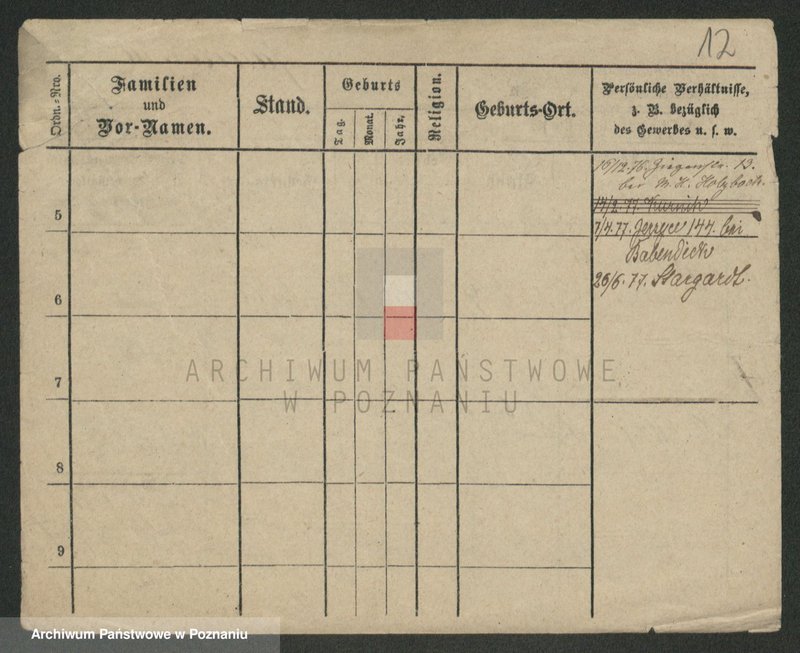 12
Ordn.-Nro.
Familien
und
Vor-Namen.
Stand.
Geburts
Tag.
Monat.
Jahr.
Religion.
Geburts-Ort.
Persönliche Verhältnisse,
z. B. bezüglich
des Gewerbes u. s. w.
15/12. 76. Ziegenstr. 13.
bei M. K. Holzbock.
14/2. 77 Kurnik
7/4. 77. Jerzyce 144. bei
Babendeck
26/6. 77. Stargardt.
5
6
7
8
9
ARCHIWUM PAŃSTWOWE
W POZNANIU
Archiwum Państwowe w Poznaniu